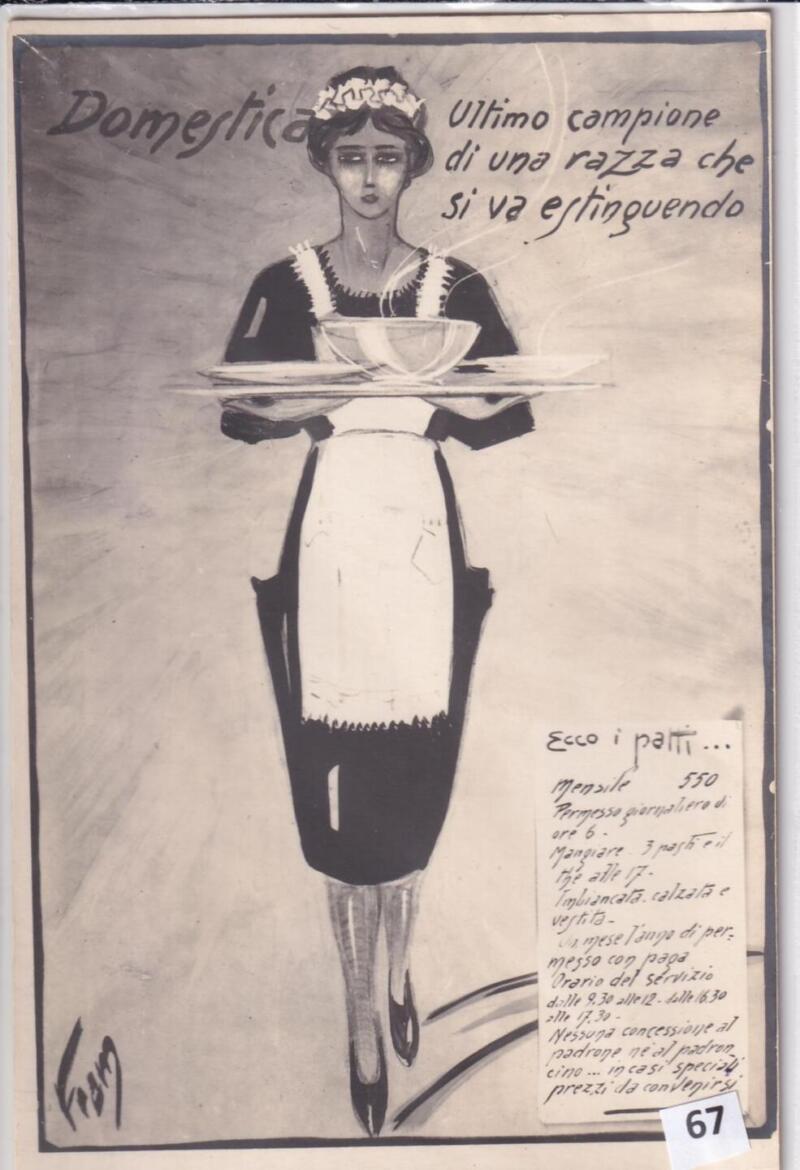 Domestica
Ultimo campione
di una razza che
si va estinguendo
Ecco i patti...
Mensile 550
Permesso giornaliero di
ore 6-
Mangiare 3 pasti e il
thé alle 17-
Imbiancata, calzata e
vestita-
Un mese l'anno di per=
messo con paga
Orario del servizio
dalle 9.30 alle 12- dalle 16.30
alle 17.30-
Nessuna concessione al
padrone né al padron
cino... in casi speciali
prezzi da convenirsi
Fram
67